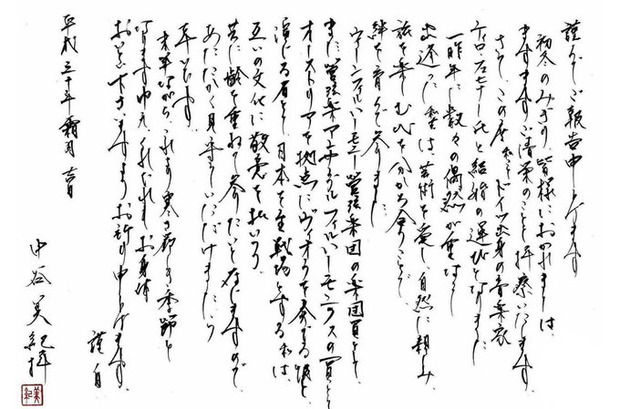 謹んでご報告申し上げます
初冬のみぎり、皆様におかれましては、
ますますご清栄のことと拝察いたします。
さて、この度 私ことドイツ出身の音楽家
ティロ・フェヒナー氏と結婚の運びとなりました。
一昨年に数々の偶然が重なり
出逢った私達は芸術を愛し、自然に親しみ、
旅を楽しむひとときを分かち合うことで、
絆を育んで参りました。
ウィーンフィルハーモニー管弦楽団の楽団員として
また、管弦楽アンサンブルフィルハーモニクスの一員として
オーストリアを拠点にヴィオラを奏でる彼と、
演じる者として日本を主戦場とする私は、
互いの文化に敬意を払いつつ
共に齢を重ねて参りたいと存じますので
あたたかく見守っていただけましたら
幸いです。
末筆ながら、これより寒さ募る季節と
なりますゆえくれぐれもお身体
おいとい下さいますようお祈り申し上げます。
謹白
平成三十年霜月吉日
中谷美紀拝
美紀